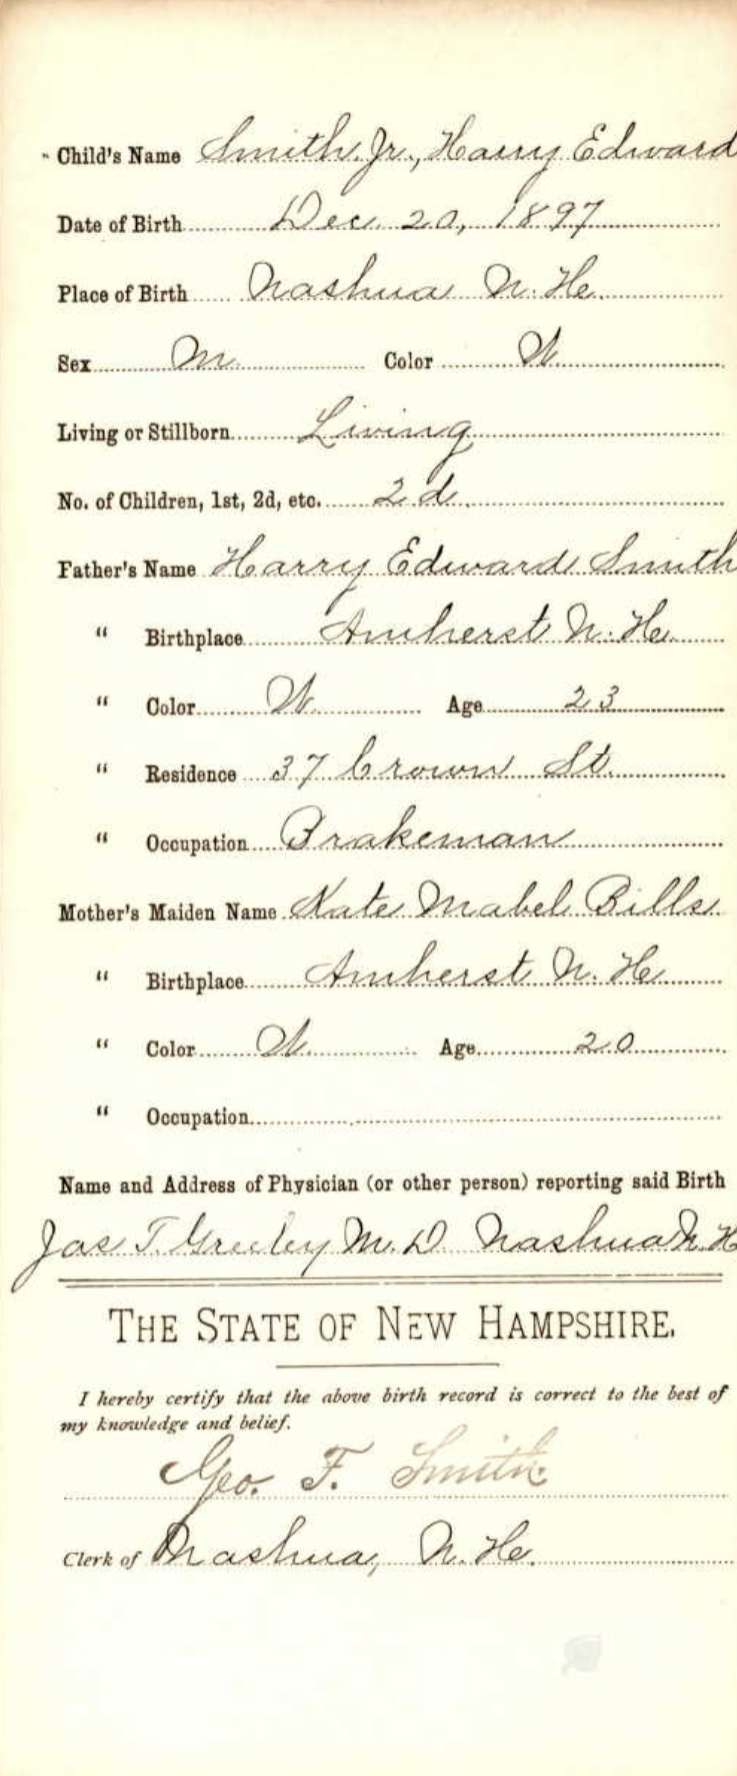 Child's Name Smith Jr., Harry Edward
Date of Birth Dec. 20, 1897
Place of Birth Nashua N. H.
Sex M. Color W.
Living or Stillborn Living
No. of Children, 1st, 2d, etc. 2d
Father's Name Harry Edward Smith
" Birthplace Amherst N. H.
" Color W. Age 23
" Residence 37 Crown St.
" Occupation Brakeman
Mother's Maiden Name Kate Mabel Bills
" Birthplace Amherst N. H.
" Color W. Age 20
" Occupation
Name and Address of Physician (or other person) reporting said Birth
Jas T. Greeley M. D. Nashua N. H.
THE STATE OF NEW HAMPSHIRE.
I hereby certify that the above birth record is correct to the best of
my knowledge and belief.
Geo. F. Smith.
Clerk of Nashua, N. H.